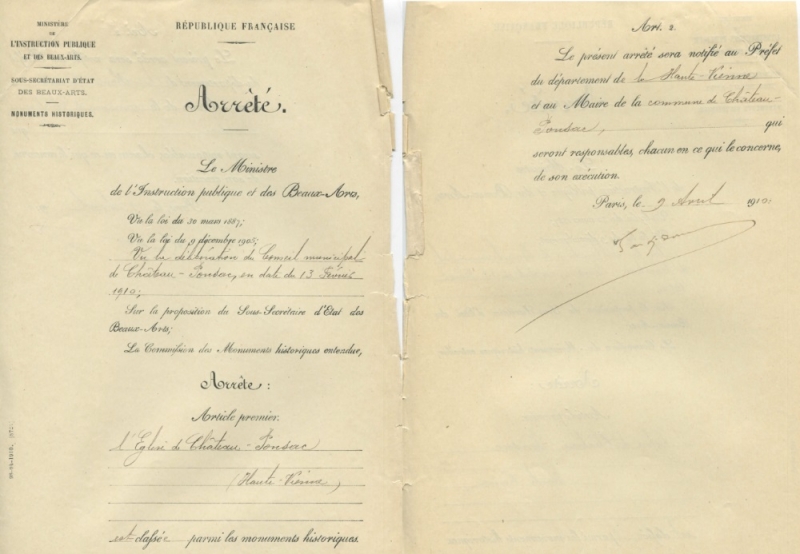 MINISTÈRE
DE
L'INSTRUCTION PUBLIQUE
ET DES BEAUX-ARTS.
SOUS-SECRÉTARIAT D'ÉTAT
DES BEAUX-ARTS.
MONUMENTS HISTORIQUES.
RÉPUBLIQUE FRANÇAISE
Arrêté.
Le Ministre
de l'Instruction publique et des Beaux-Arts,
Vu la loi du 30 mars 1887;
Vu la loi du 9 décembre 1905;
Vu la délibération du Conseil municipal
de Château-Ponsac, en date du 13 Février
1910;
Sur la proposition du Sous-Secrétaire d'État des
Beaux-Arts;
La Commission des Monuments historiques entendue,
Arrête:
Article premier.
L'Eglise de Château-Ponsac
(Haute-Vienne)
est classée parmi les monuments historiques.
Art. 2.
Le présent arrêté sera notifié au Préfet
du département de la Haute-Vienne
et au Maire de la commune de Château-
Ponsac, qui
seront responsables, chacun en ce qui le concerne,
de son exécution.
Paris, le 9 Avril 1910.